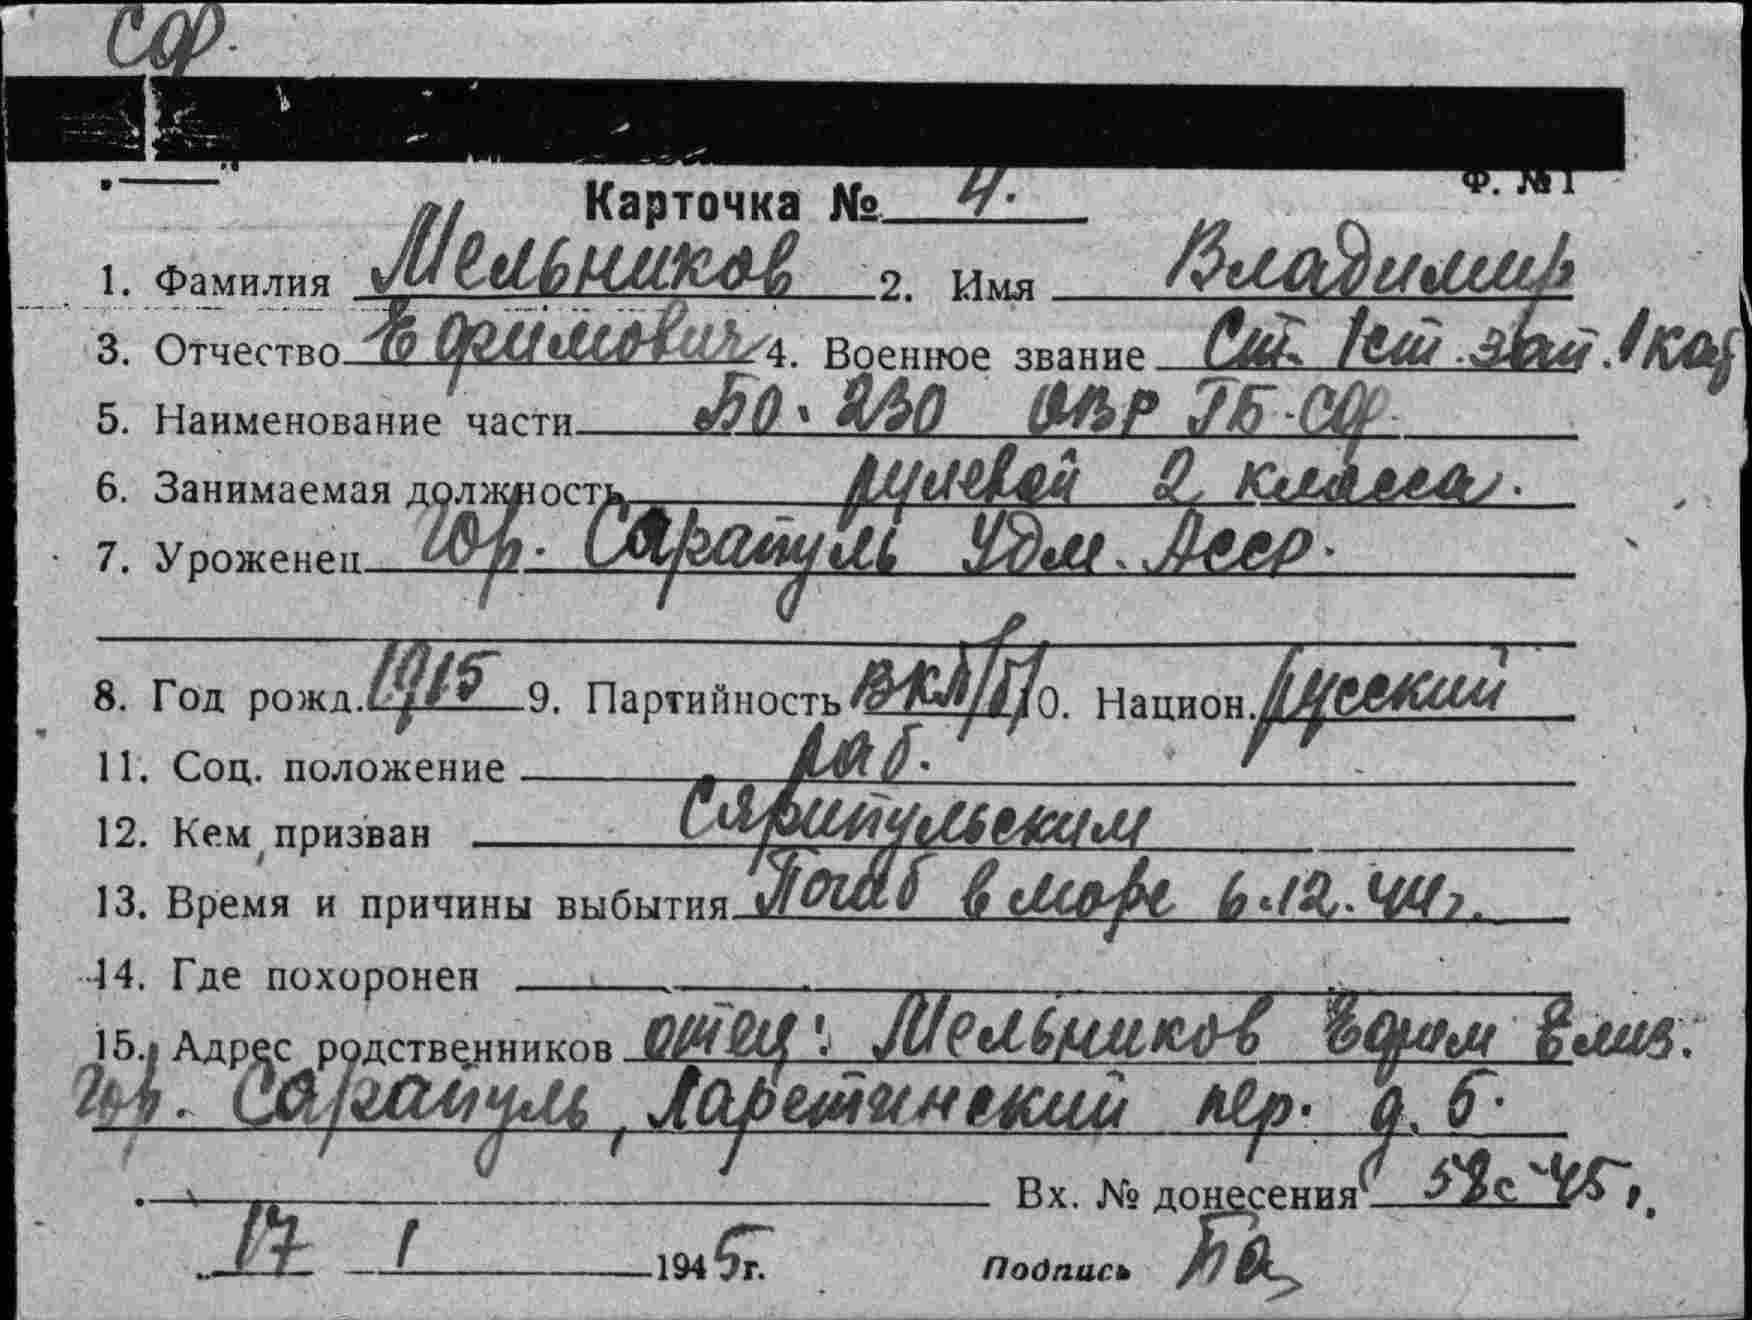 СФ.
Ф. №1
Карточка № 4.
1. Фамилия Мельников 2. Имя Владимир
3. Отчество Ефимович 4. Военное звание Ст. 1 ст. зап. 1 кат
5. Наименование части БО-230 ОВР ГБ-СФ.
6. Занимаемая должность рулевой 2 класса.
7. Уроженец гор. Сарапуль Удм. Асср.
8. Год рожд. 1915 9. Партийность ВКП/б/ 10. Национ. русский
11. Соц. положение раб.
12. Кем призван Сарапульским
13. Время и причины выбытия Погиб в море 6.12.44г.
14. Где похоронен
15. Адрес родственников отец: Мельников Ефим Елиз.
гор. Сарапуль, Ларетинский пер. д. 5.
Вх. № донесения 58с-45г.
17 1 1945г. Подпись